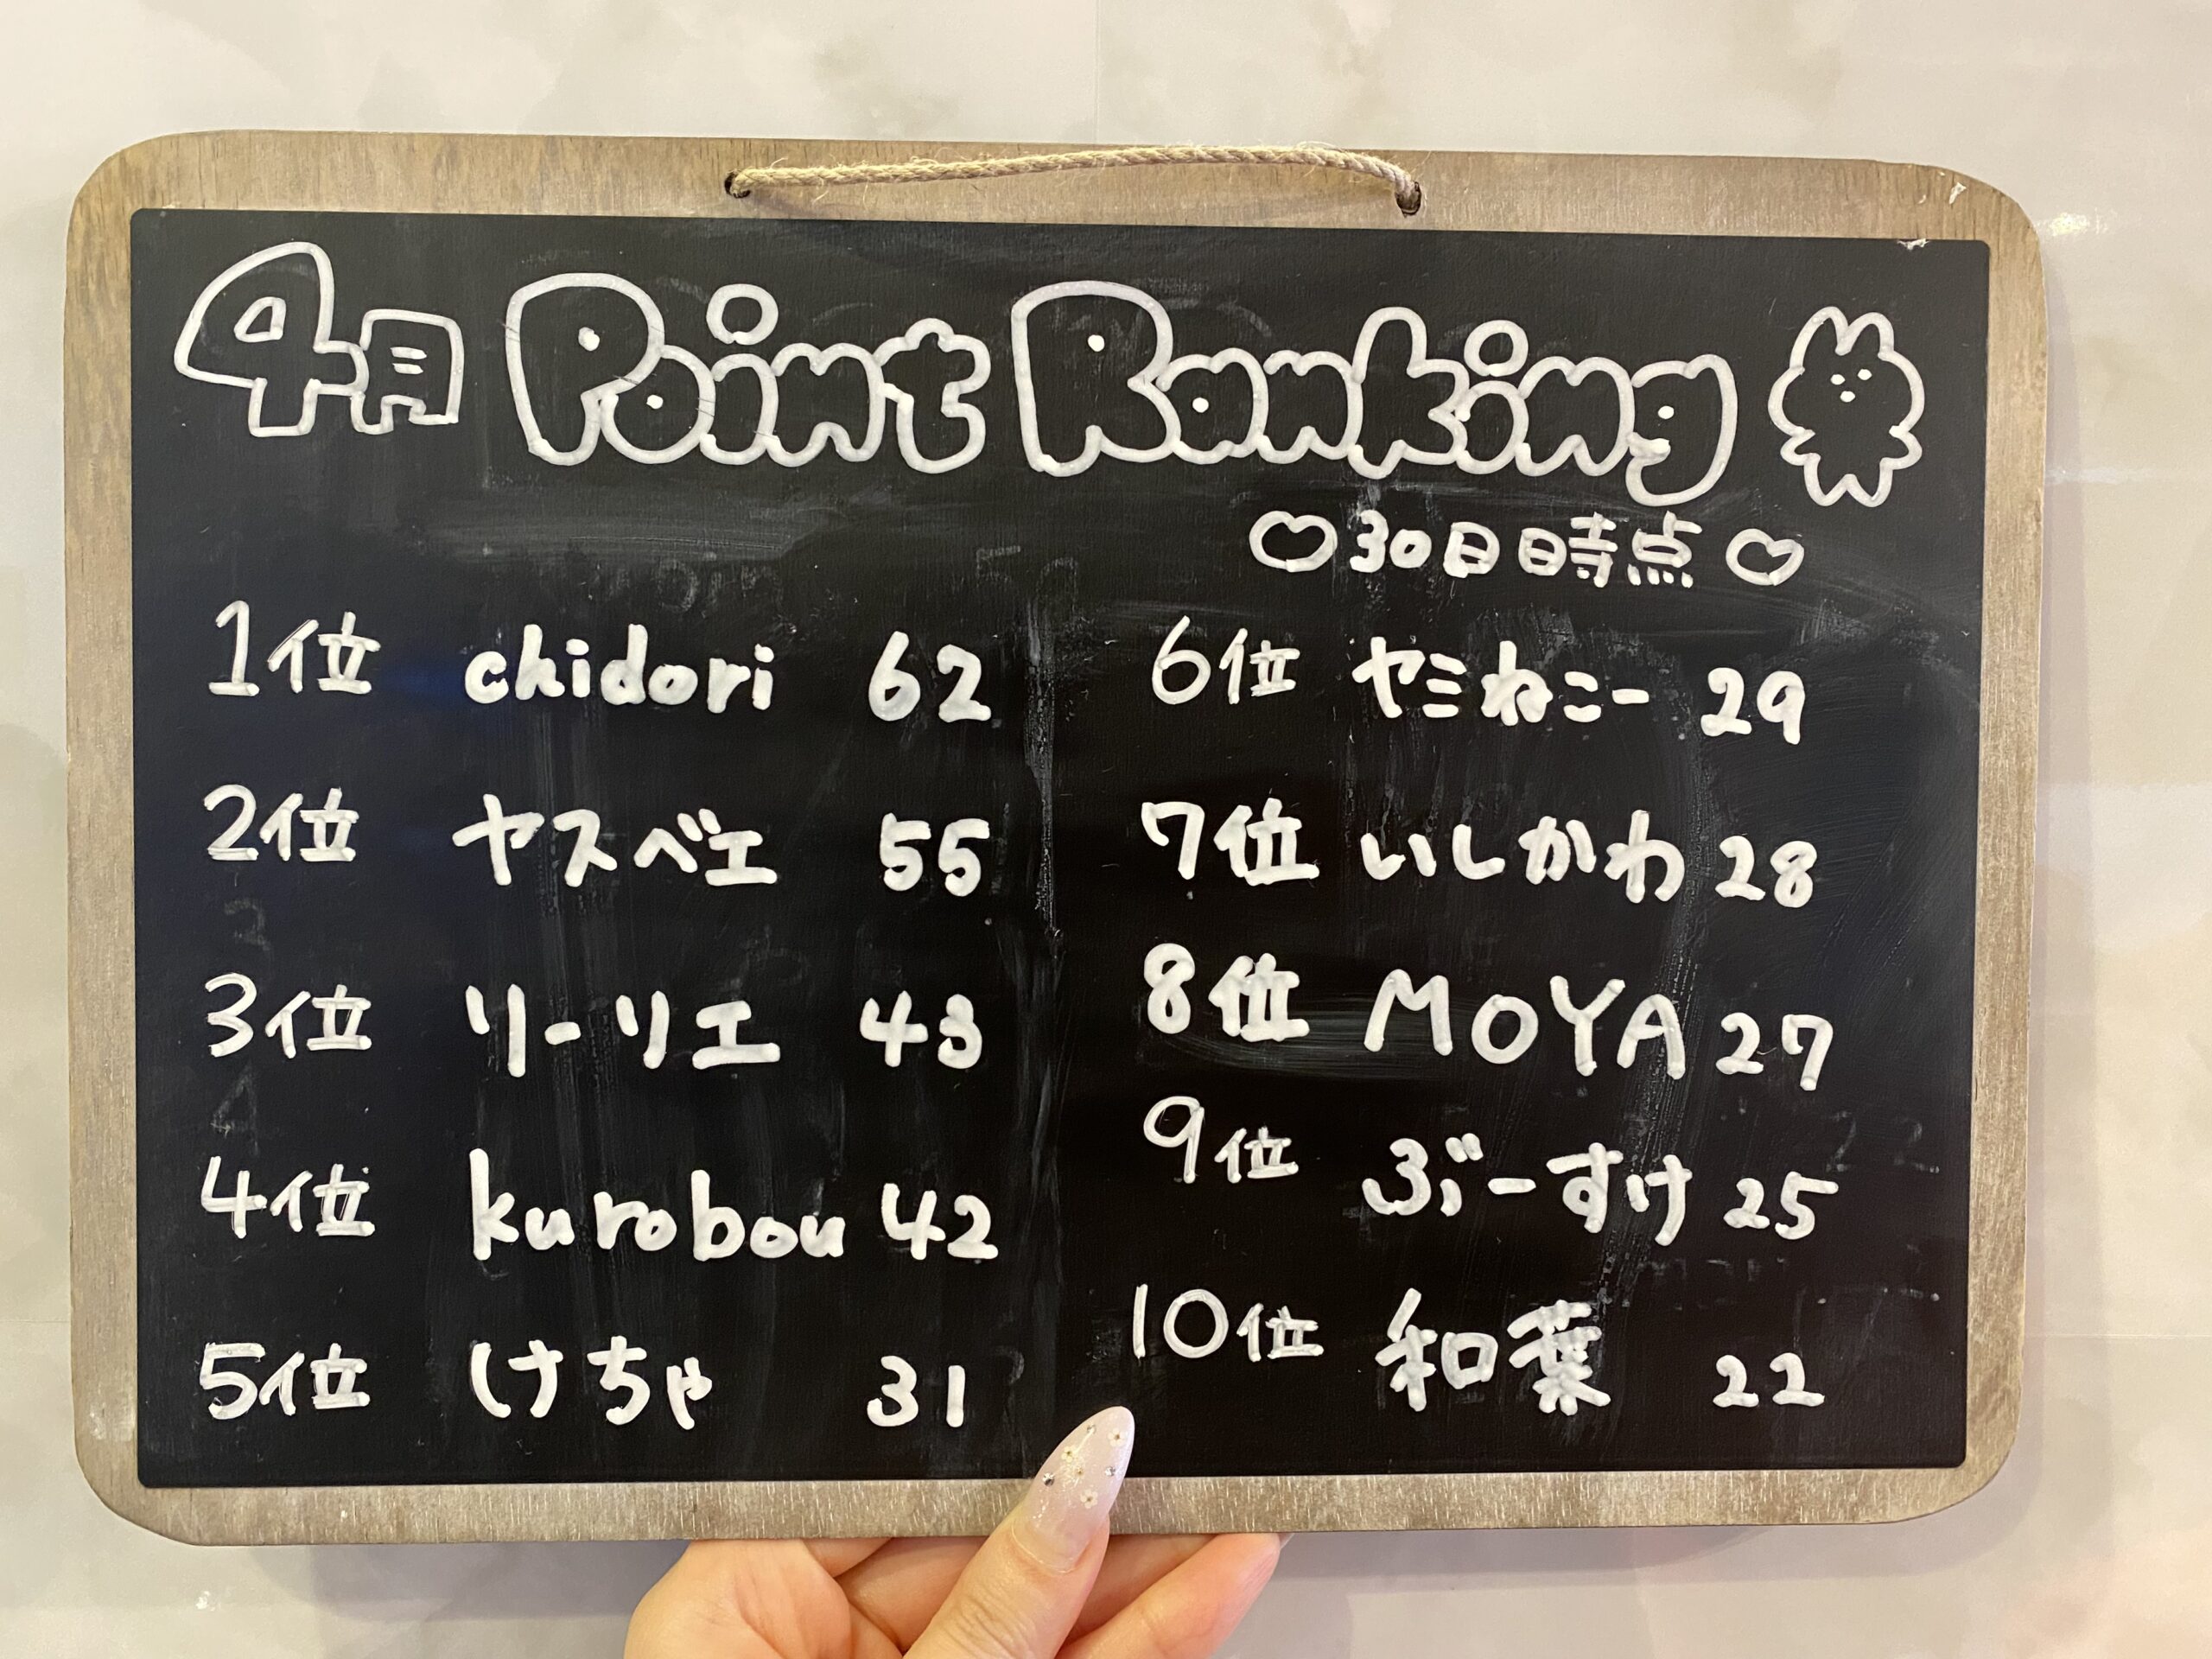 4月 Point Ranking
♡30日時点♡
1位 chidori 62
2位 ヤスベエ 55
3位 リーリエ 43
4位 kurobou 42
5位 けちゃ 31
6位 ヤミねこー 29
7位 いしかわ 28
8位 MOYA 27
9位 ぶーすけ 25
10位 和葉 22